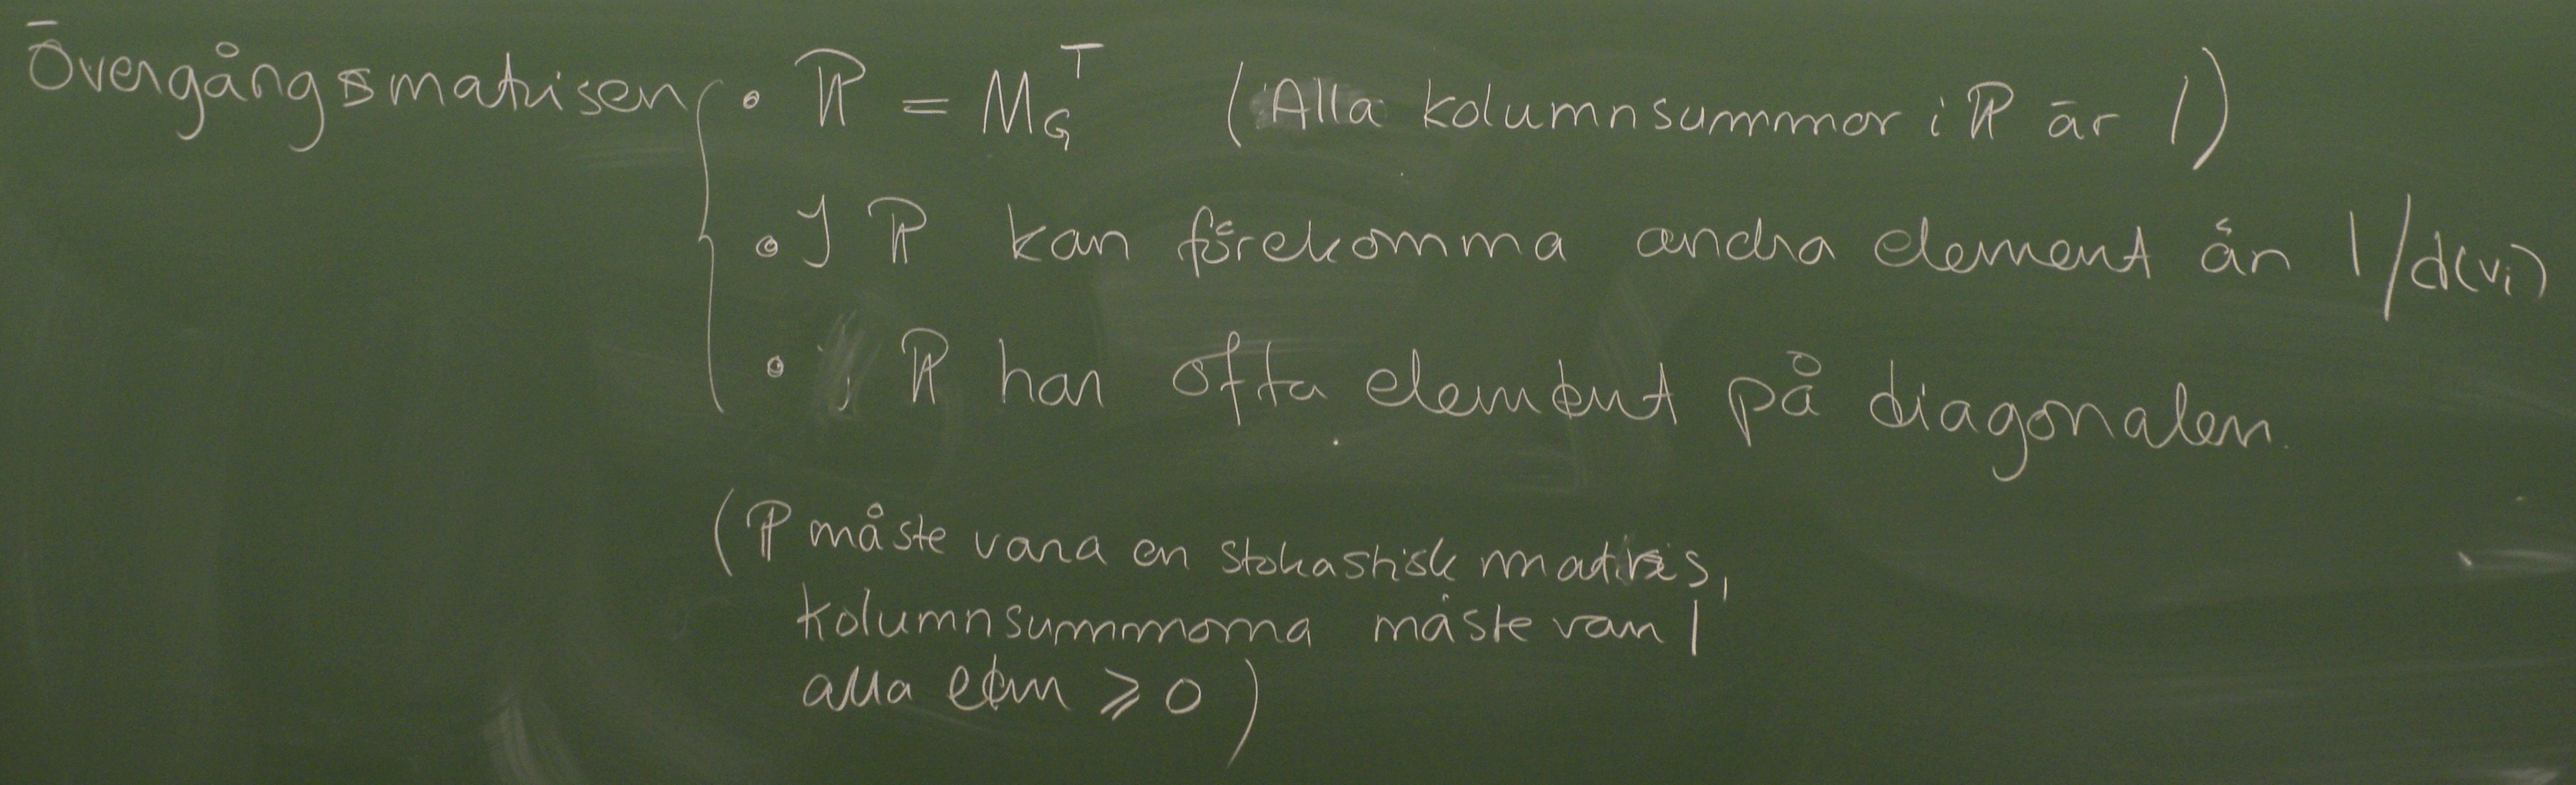 Övergångsmatrisen • ℙ = M_G^T (Alla kolumnsummor i ℙ är 1)
• I ℙ kan förekomma andra element än 1/d(vi)
• ℙ har ofta element på diagonalen.
(ℙ måste vara en stokastisk matris,
kolumnsummorna måste vara 1
alla elem ⩾ 0)